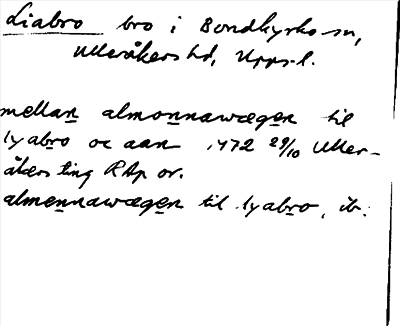 Liabro bro i Bondkyrko sn,
Ulleråkers hd, Upps. l.
mellan almonnawægen til
lyabro oc aan 1472 29/10 Uller-
åkers ting RAp or.
almennawægen til lyabro, ib.